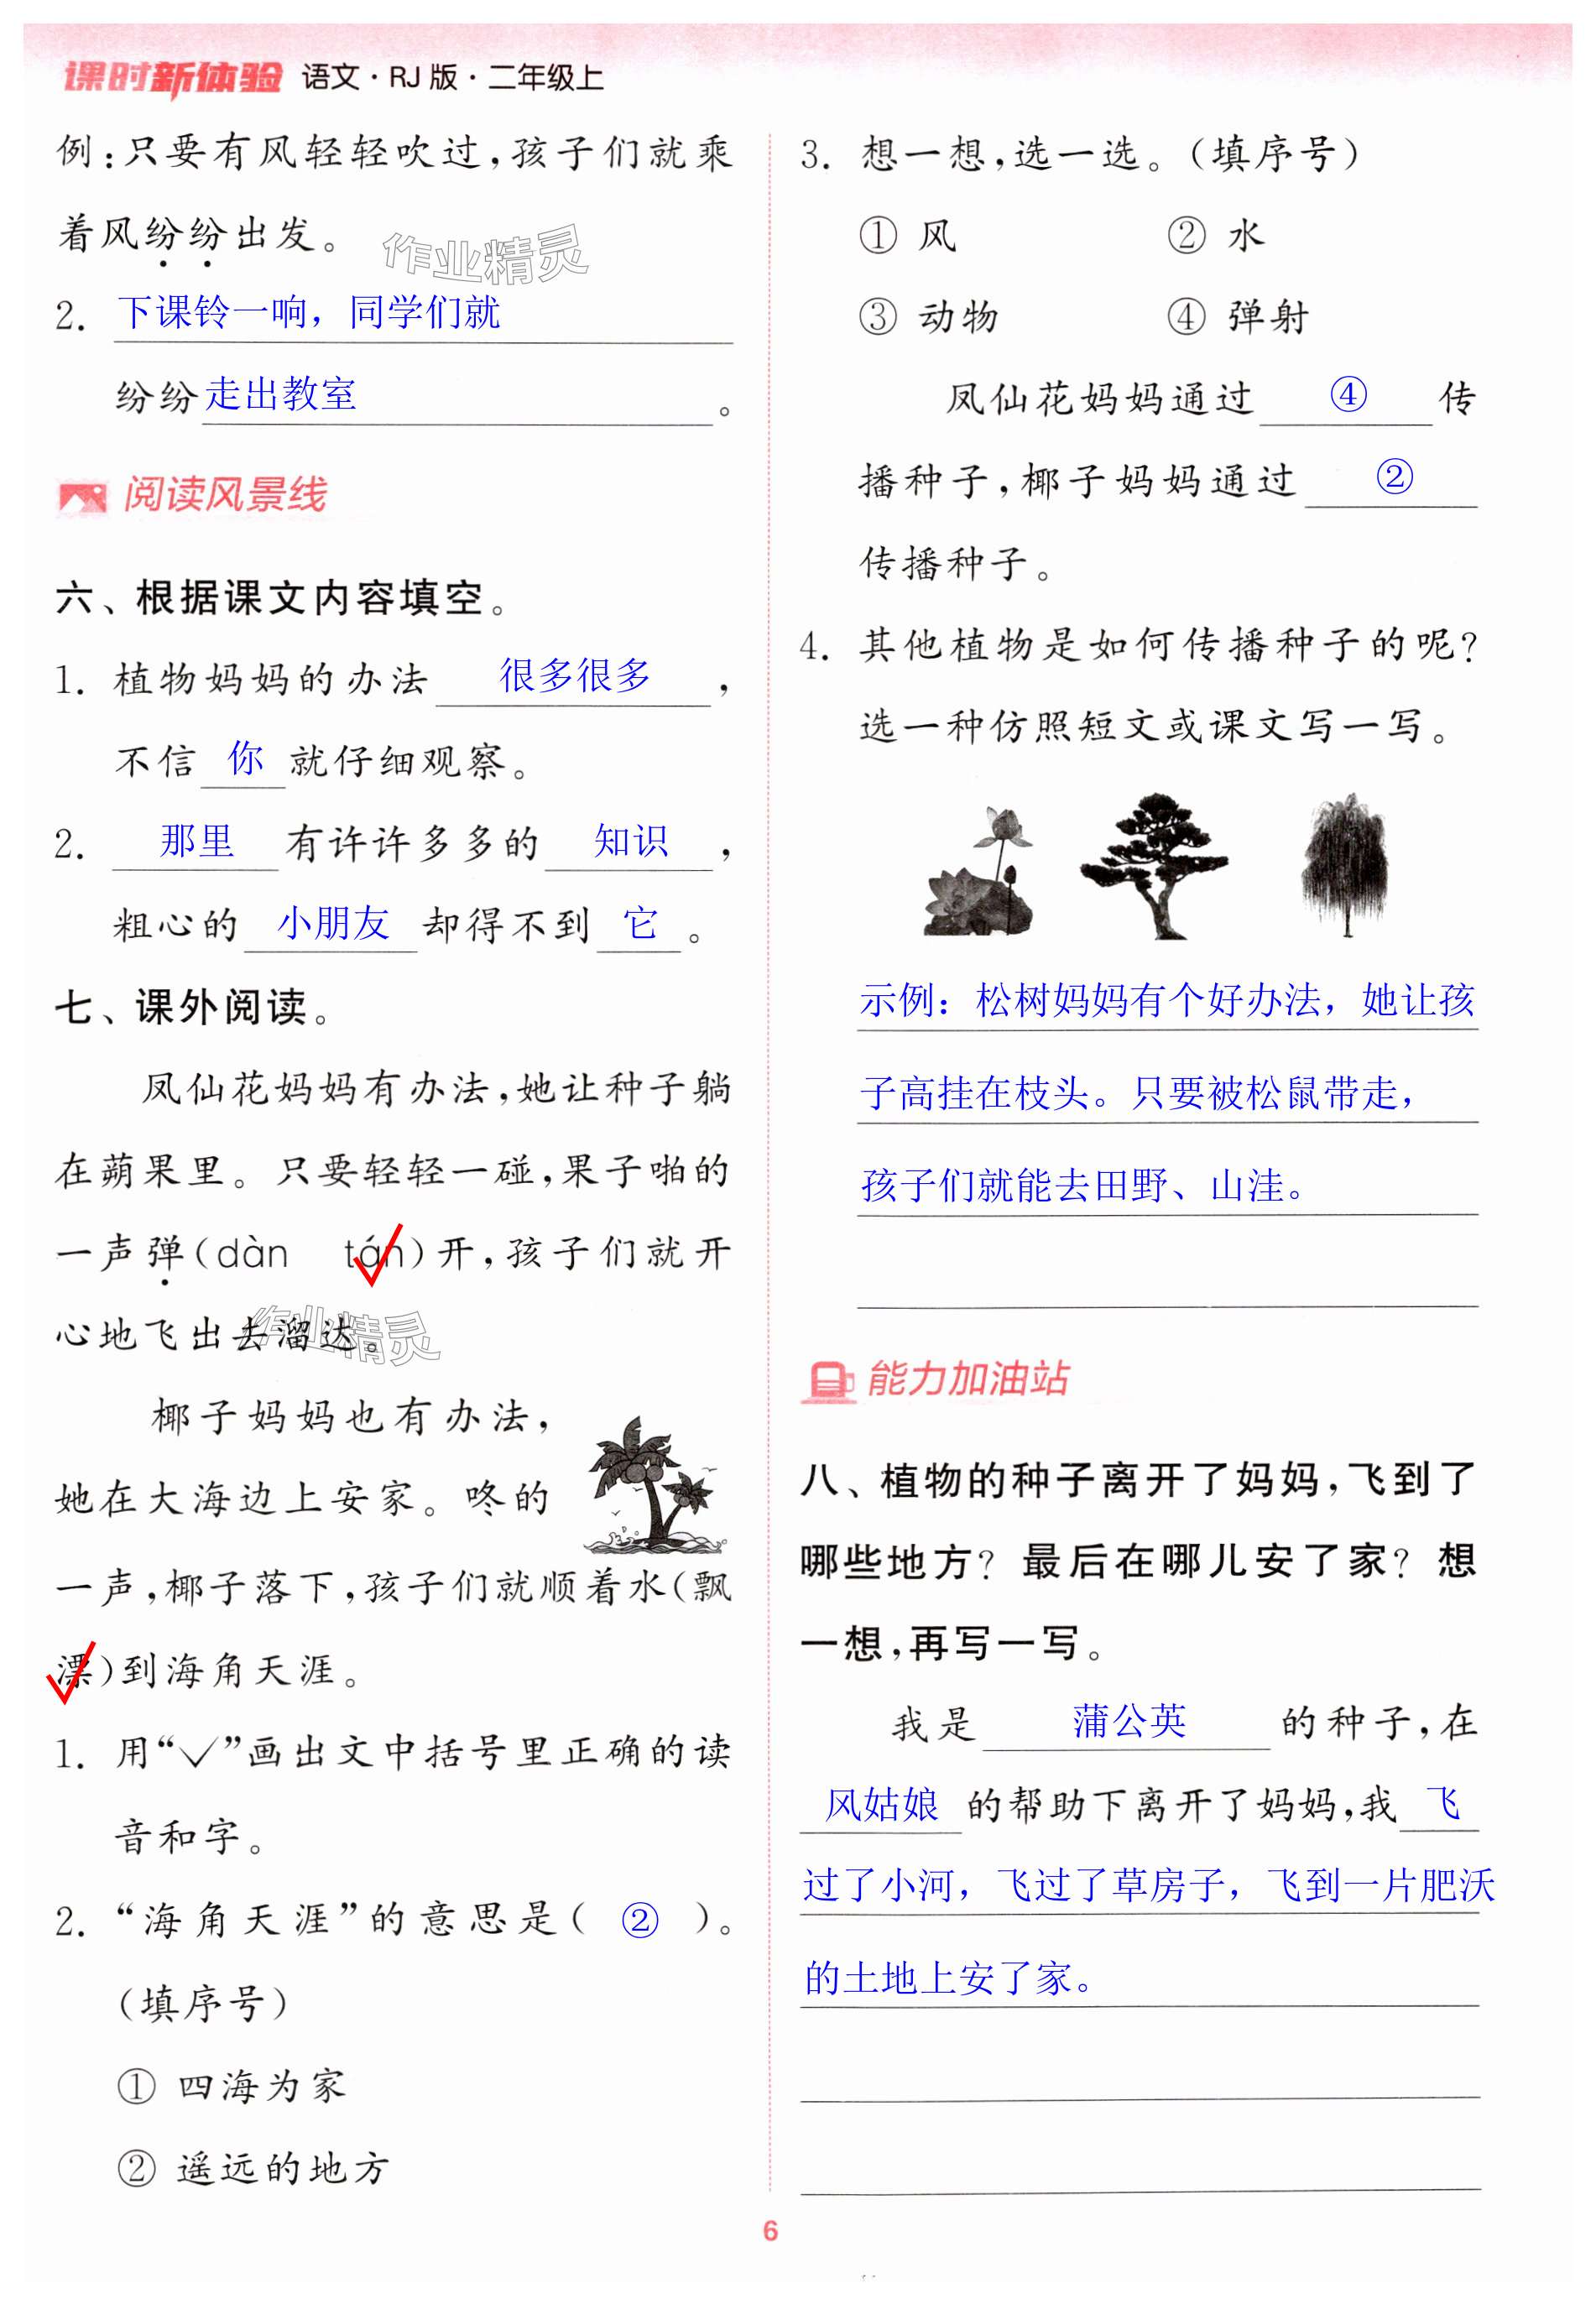 课时新体验 语文·RJ版·二年级上
例:只要有风轻轻吹过,孩子们就乘
着风纷纷出发。
作业精灵
2. 下课铃一响，同学们就
纷纷走出教室。
阅读风景线
六、根据课文内容填空。
1. 植物妈妈的办法很多很多,
不信你就仔细观察。
2. 那里有许许多多的知识,
粗心的小朋友却得不到它。
七、课外阅读。
凤仙花妈妈有办法,她让种子躺
在蒴果里。只要轻轻一碰,果子啪的
一声弹(dàn tán✓)开,孩子们就开
心地飞出去溜达。
作业精灵
椰子妈妈也有办法,
她在大海边上安家。咚的
一声,椰子落下,孩子们就顺着水(飘
漂✓)到海角天涯。
1. 用“✓”画出文中括号里正确的读
音和字。
2. “海角天涯”的意思是( ② )。
(填序号)
① 四海为家
② 遥远的地方
3. 想一想,选一选。(填序号)
① 风 ② 水
③ 动物 ④ 弹射
凤仙花妈妈通过 ④ 传
播种子,椰子妈妈通过 ②
传播种子。
4. 其他植物是如何传播种子的呢?
选一种仿照短文或课文写一写。
示例：松树妈妈有个好办法，她让孩
子高挂在枝头。只要被松鼠带走，
孩子们就能去田野、山洼。
能力加油站
八、植物的种子离开了妈妈,飞到了
哪些地方? 最后在哪儿安了家? 想
一想,再写一写。
我是 蒲公英 的种子,在
风姑娘 的帮助下离开了妈妈,我 飞
过了小河，飞过了草房子，飞到一片肥沃
的土地上安了家。
6